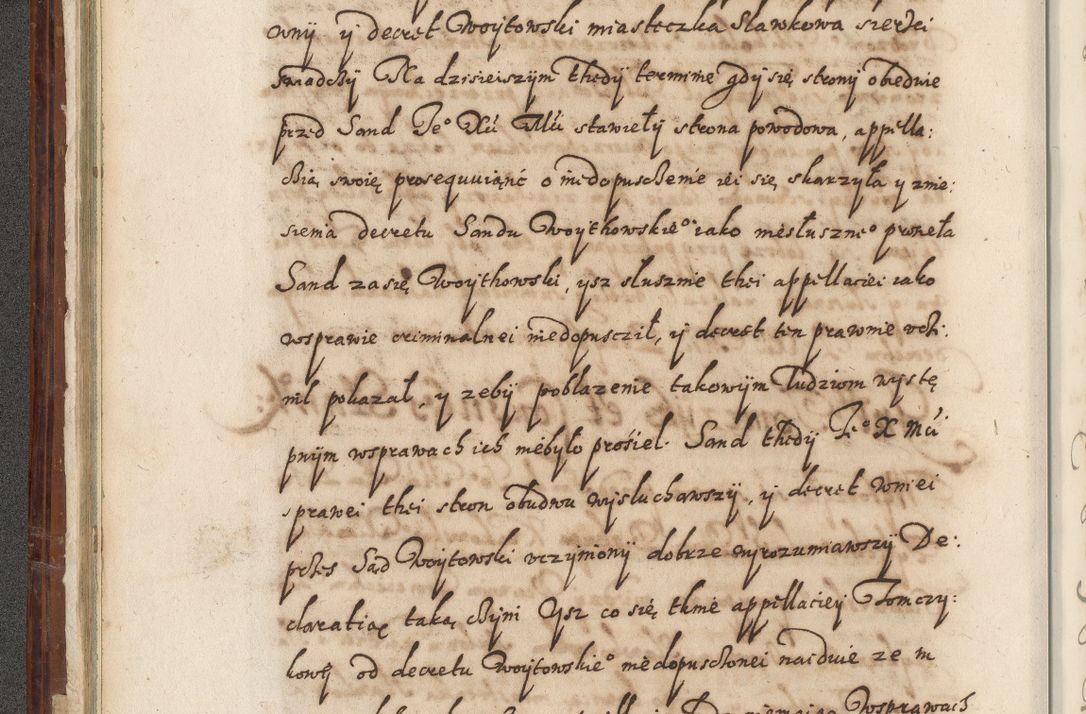 wny y decret Woytowski miasteczka Slawkowa szerzei
swiadczy Na dzisieiszym thedy terminie gdy się strony obiedwie
przed Sand Je° Xci Mci stawieły strona powodowa, appella:
czią swoię prosequuiąnc o niedopusczenie iei się skarzyła y znie:
sienia decretu Sandu Woythowskie° iako niesłuszne° prosieła
Sand zasię Woythowski, ysz slusznie thei appellaciei iako
wsprawie criminalnei niedopuscził, y decret ten prawnie vczi:
nil pokazał, y zeby poblazenie takowym ludziom wystę
pnym wsprawach ich niebyło prosiel. Sand thedy Je° X Mci
sprawei thei stron obudwu wysluchawszy, y decret wniei
przes Sąd Woytowski vczyniony dobrze wyrozumiawszy De:
claratią taką czyni Ysz co się tknie appellaciey Tomczy:
kowy od decretu Woytowskie° niedopusczonei naiduie ze m
wsprawach